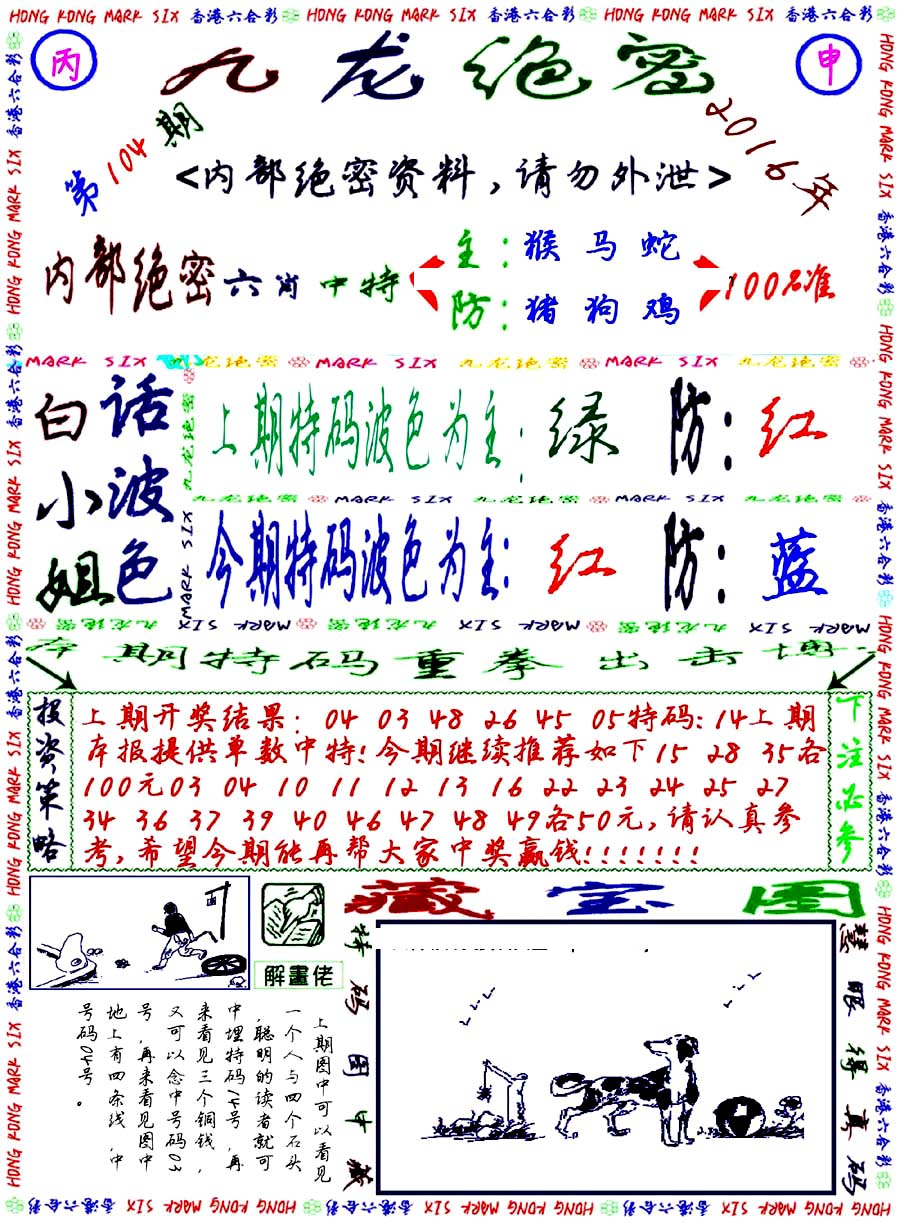 HONG KONG MARK SIX 香港六合彩 HONG KONG MARK SIX 香港六合彩 HONG KONG MARK SIX 香港六合彩
丙
九龙绝密
申
第104期
2016年
<内部绝密资料,请勿外泄>
内部绝密六肖中特
主:猴 马 蛇
防:猪 狗 鸡
100%准
MARK SIX 九龙绝密 MARK SIX 九龙绝密 MARK SIX 九龙绝密
白小姐
话波色
上期特码波色为主:绿 防:红
九龙绝密 MARK SIX 九龙绝密 MARK SIX 九龙绝密
今期特码波色为主:红 防:蓝
MARK SIX 九龙绝密 MARK SIX 九龙绝密 MARK SIX 九龙绝密
期特码重拳出击
投资策略
上期开奖结果: 04 03 48 26 45 05特码:14上期
本报提供单数中特!今期继续推荐如下15 28 35各
100元03 04 10 11 12 13 16 22 23 24 25 27
34 36 37 39 40 46 47 48 49各50元,请认真参
考,希望今期能再帮大家中奖赢钱!!!!!!!
下注必参
藏宝图
解畫佬
特码图中藏
慧眼得真码
上期图中可以看见
一个人与四个石头
,聪明的读者就可
中埋特码14号,再
来看见三个铜钱,
又可以念中号码03
号,再来看见图中
地上有四条线,中
号码04号。
HONG KONG MARK SIX 香港六合彩 HONG KONG MARK SIX 香港六合彩 HONG KONG MARK SIX 香港六合彩